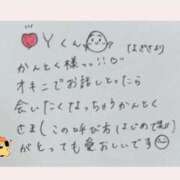 Yくん (なぎさより)
かんとく様ッ!!
オキニでお話しとったら
会いたくなっちゃうかんとく
さま(この呼び方はじめて笑)
がとっても愛おしいです